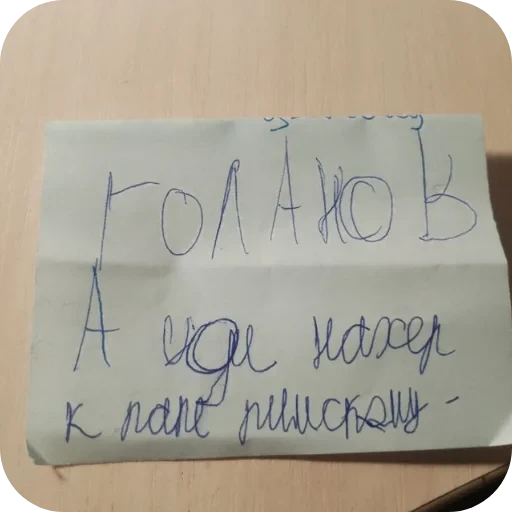 ГОЛАНОВ
А иди нахер
к папе римскому -